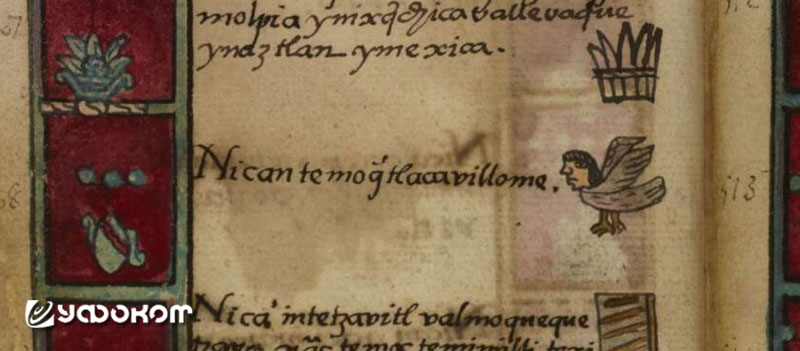 molpia ynixq̄chica valle vaque
ynaztlan ymexica.
Nican temoq̄ tlacavillome.
513
Nica' intetzavitl valmoqueque
УФОКОМ